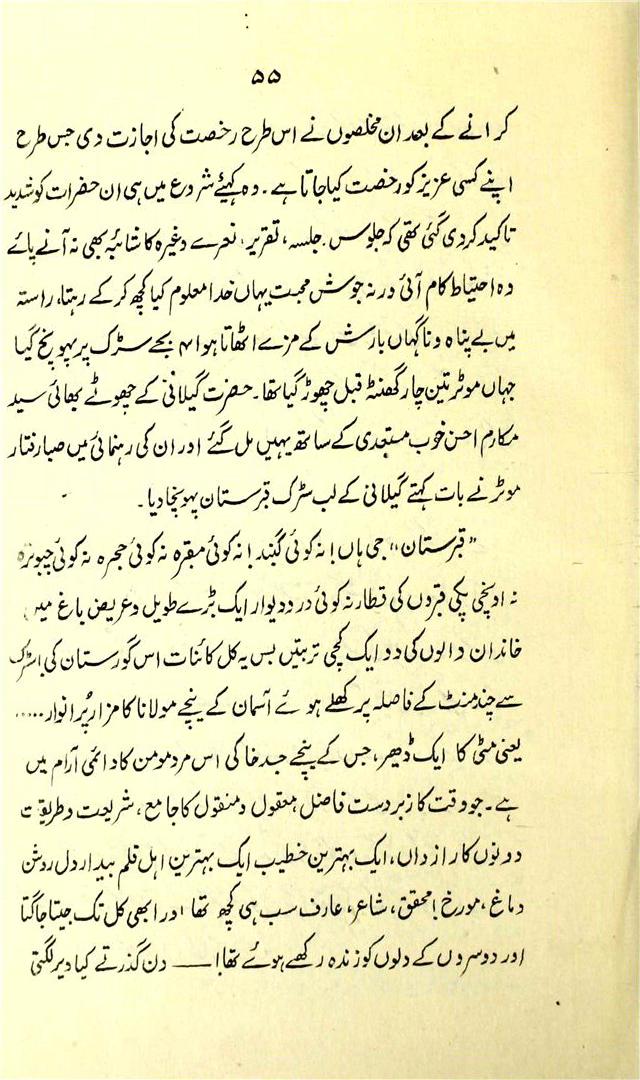 ۵۵
کرانے کے بعد ان مخلصوں نے اس طرح رخصت کی اجازت دی جس طرح
اپنے کسی عزیز کو رخصت کیا جاتا ہے۔ وہ کہئے شروع میں ہی ان حضرات کو شدید
تاکید کردی گئی تھی کہ جلوس۔ جلسہ، تقریر، نعرے وغیرہ کا شائبہ بھی نہ آنے پائے
وہ احتیاط کام آئی ورنہ جوش محبت یہاں خدا معلوم کیا کچھ کرکے رہتا، راستہ
میں بے پناہ و ناگہاں بارش کے مزے اٹھاتا ہوا ۴ بجے سڑک پر پہونچ گیا
جہاں موٹر تین چار گھنٹہ قبل چھوڑ گیا تھا۔ حضرت گیلانی کے چھوٹے بھائی سید
مکارم احسن خوب مستعدی کے ساتھ یہیں مل گئے اور ان کی رہنمائی میں صبا رفتار
موٹر نے بات کہتے گیلانی کے لب سڑک قبرستان پہونچا دیا۔
”قبرستان“ جی ہاں! نہ کوئی گنبد! نہ کوئی مقبرہ نہ کوئی حجرہ نہ کوئی چبوترہ
نہ اونچی پکی قبروں کی قطار نہ کوئی در و دیوار ایک بڑے طویل و عریض باغ میں
خاندان والوں کی دو ایک کچی تربتیں بس یہ کل کائنات اس گورستان کی! سڑک
سے چند منٹ کے فاصلہ پر کھلے ہوئے آسمان کے نیچے مولانا کا مزار پُر انوار.....
یعنی مٹی کا ایک ڈھیر، جس کے نیچے جسد خاکی اس مرد مومن کا دائمی آرام میں
ہے۔ جو وقت کا زبردست فاضل، معقول و منقول کا جامع، شریعت و طریقت
دونوں کا رازداں، ایک بہترین خطیب ایک بہترین اہل قلم بیدار دل روشن
دماغ، مورخ! محقق، شاعر، عارف سب ہی کچھ تھا اور ابھی کل تک جیتا جاگتا
اور دوسروں کے دلوں کو زندہ رکھے ہوئے تھا! — دن گذرتے کیا دیر لگتی